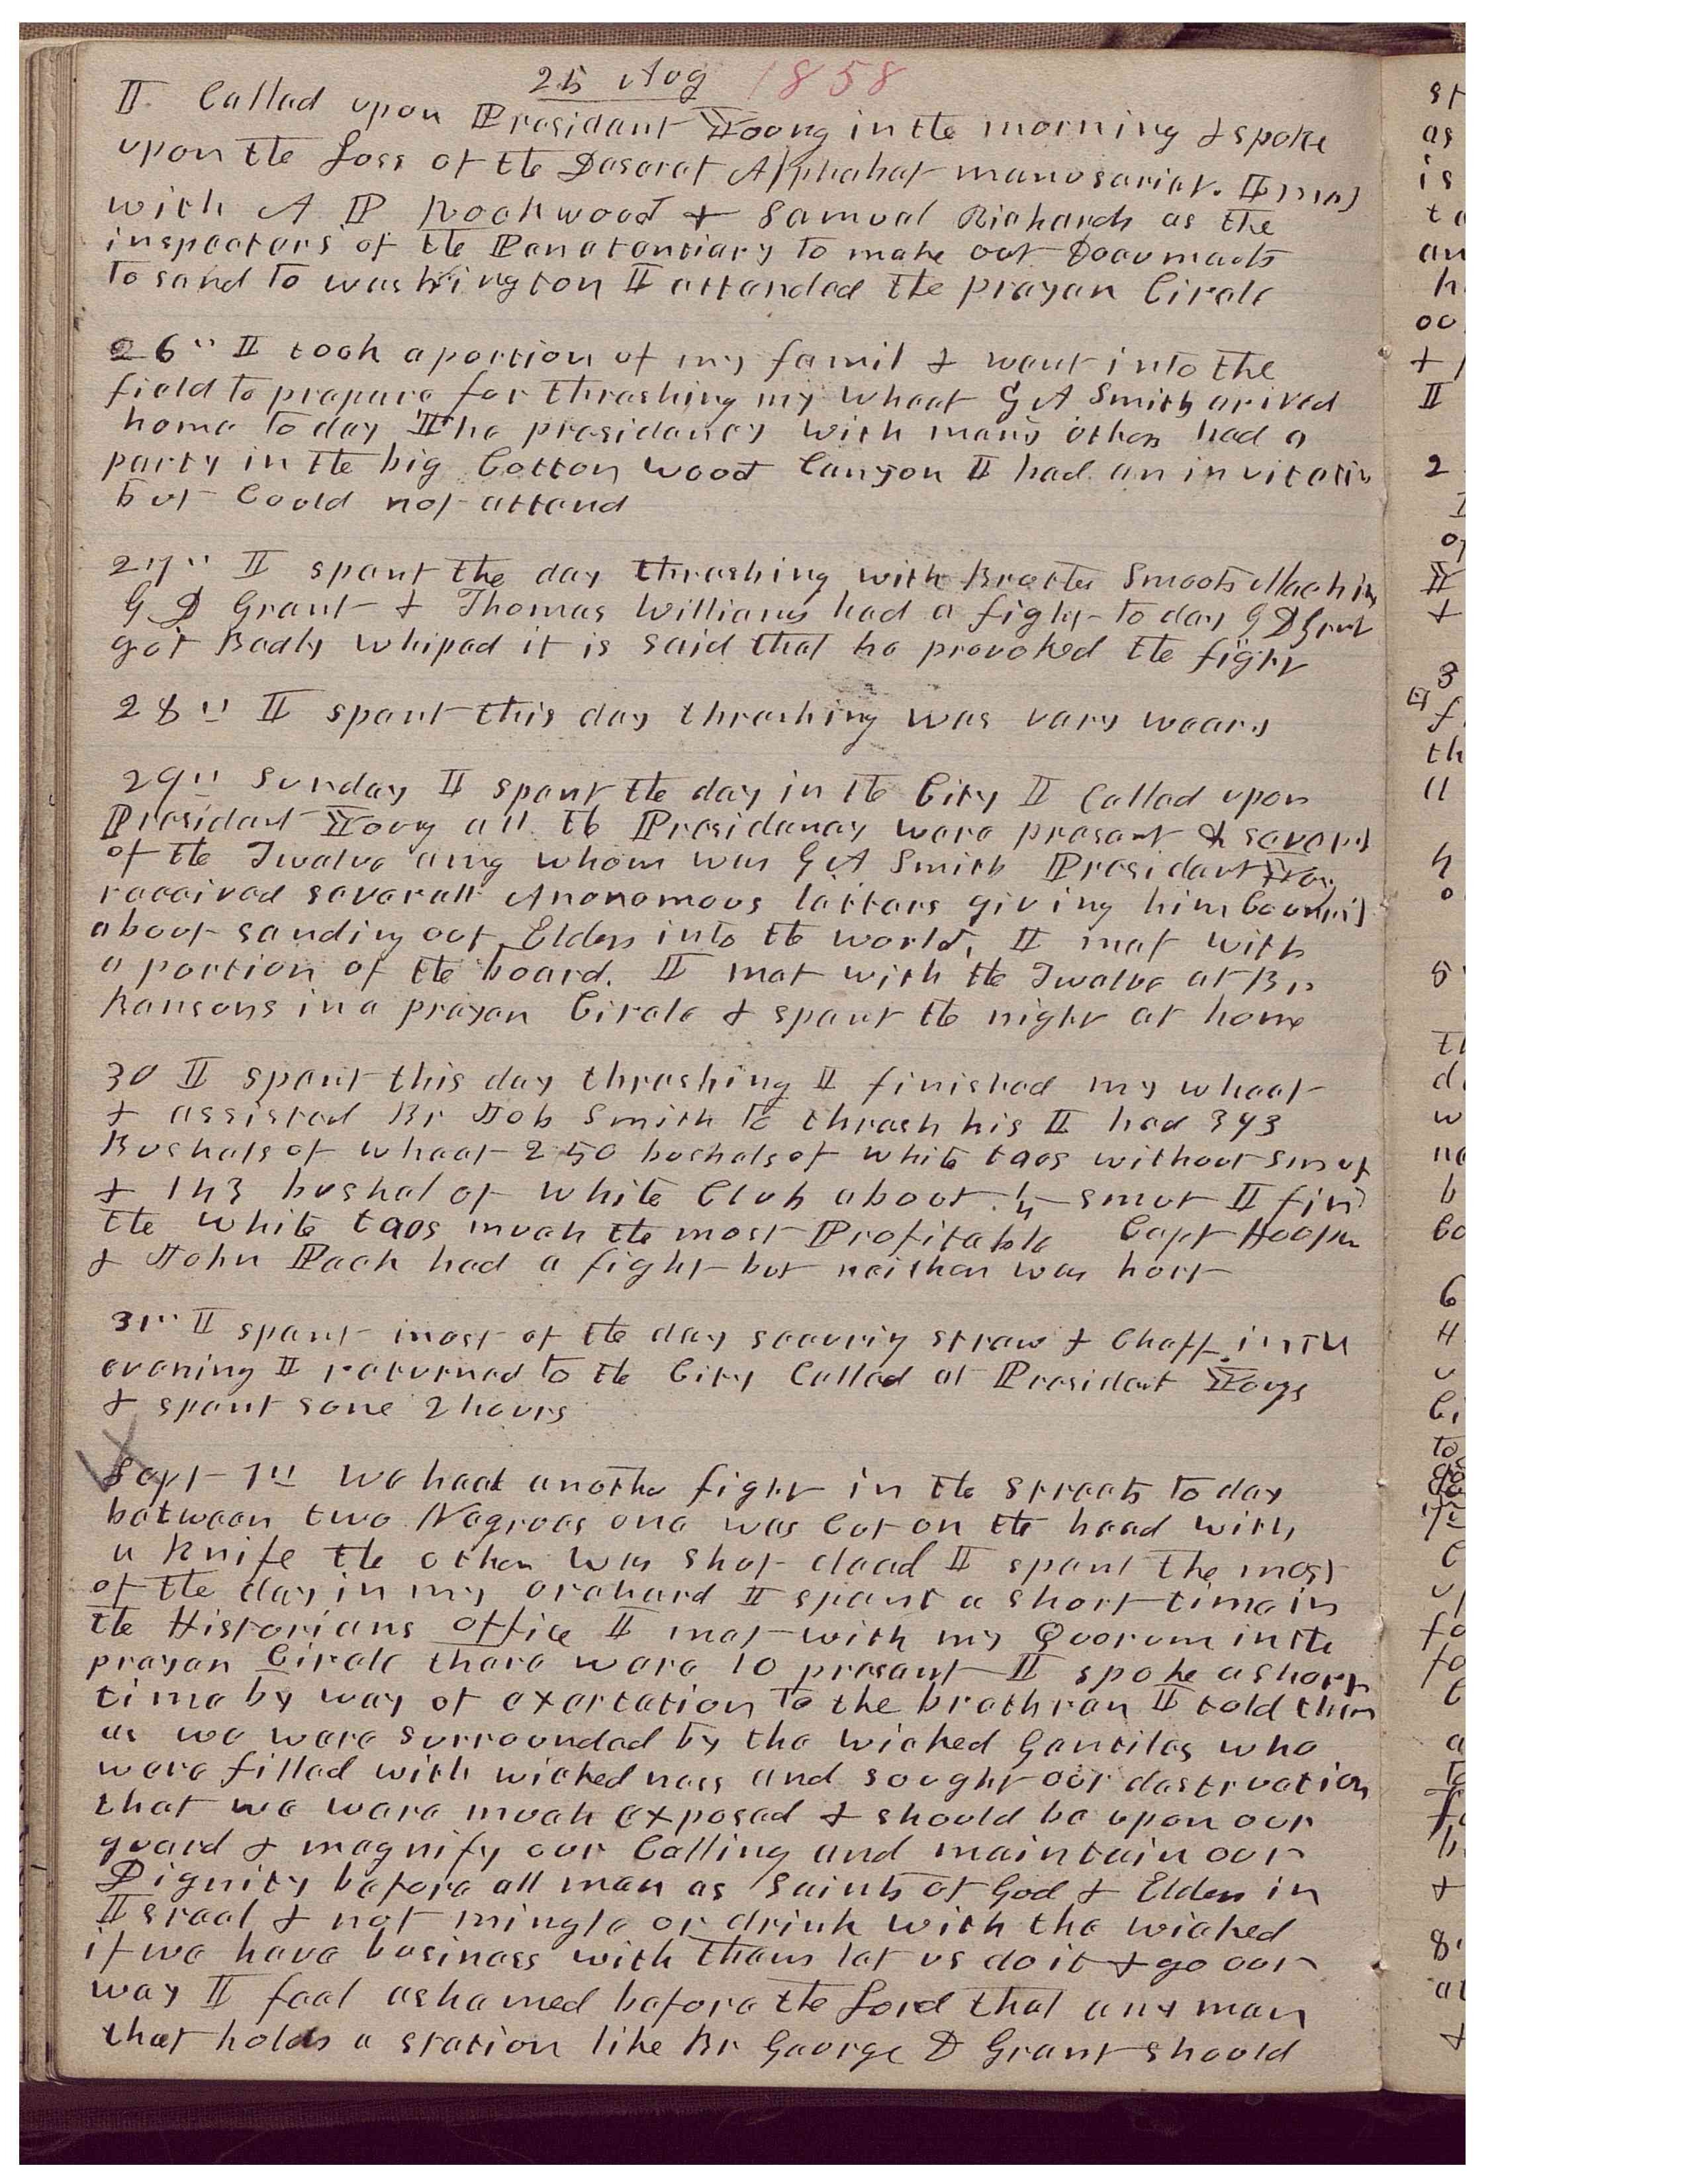 25 Aug 1858
I Called upon President Young in the morning & spoke
upon the Loss of the Deseret Alphabet manuscript. I met
with A P Rockwood & Samuel Richards as the
inspectors of the Penetentiary to make out Documents
to send to washington I attended the prayer Circle
26" I took a portion of my famil & went into the
field to prepare for thrashing my wheat G A Smith arived
home to day The presidency with many others had a
party in the big Cotton wood Canyon I had an invitatin
but Could not attend
27" I spent the day thrashing with Brother Smoots Machin
G D Grant & Thomas Williams had a fight to day G D Grant
got Badly whiped it is said that he provoked the fight
28" I spent this day thrashing was very weary
29" Sunday I spent the day in the City I Called upon
President Young all the Presidency were present & several
of the Twelve amg whom was G A Smith President Young
received severall Anonomous letters giving him Council
about sending out Elders into the world, I met with
a portion of the board. I met with the Twelve at Br
Hansons in a prayer Circle & spent the night at home
30 I spent this day thrashing I finished my wheat
& assisted Br Job Smith to thrash his I had 393
Bushels of wheat 250 bushels of white taos without smut
& 143 bushel of white Club about 1/4 smut I find
the white taos much the most Profitable Capt Hooper
& John Pack had a fight but neither was hurt
31" I spent most of the day securing straw & Chaff in the
evening I returned to the City Called at President Youngs
& spent some 2 hours
Sept 1" We had another fight in the Streets to day
between two Negroes one was Cut on the head with
a Knife the other was shot dead I spent the most
of the day in my orchard I spent a short time in
the Historians office I met with my Quorum in the
prayer Circle there were 10 present I spoke a short
time by way of exertation to the brethren I told them
as we were surrounded by the wicked Gentiles who
were filled with wickedness and sought our destruction
that we were much exposed & should be upon our
guard & magnify our Calling and maintain our
Dignity before all men as Saints of God & Elders in
Israel & not mingle or drink with the wicked
if we have business with them let us do it & go our
way I feel ashamed before the Lord that any man
that holds a station like Br George D Grant should